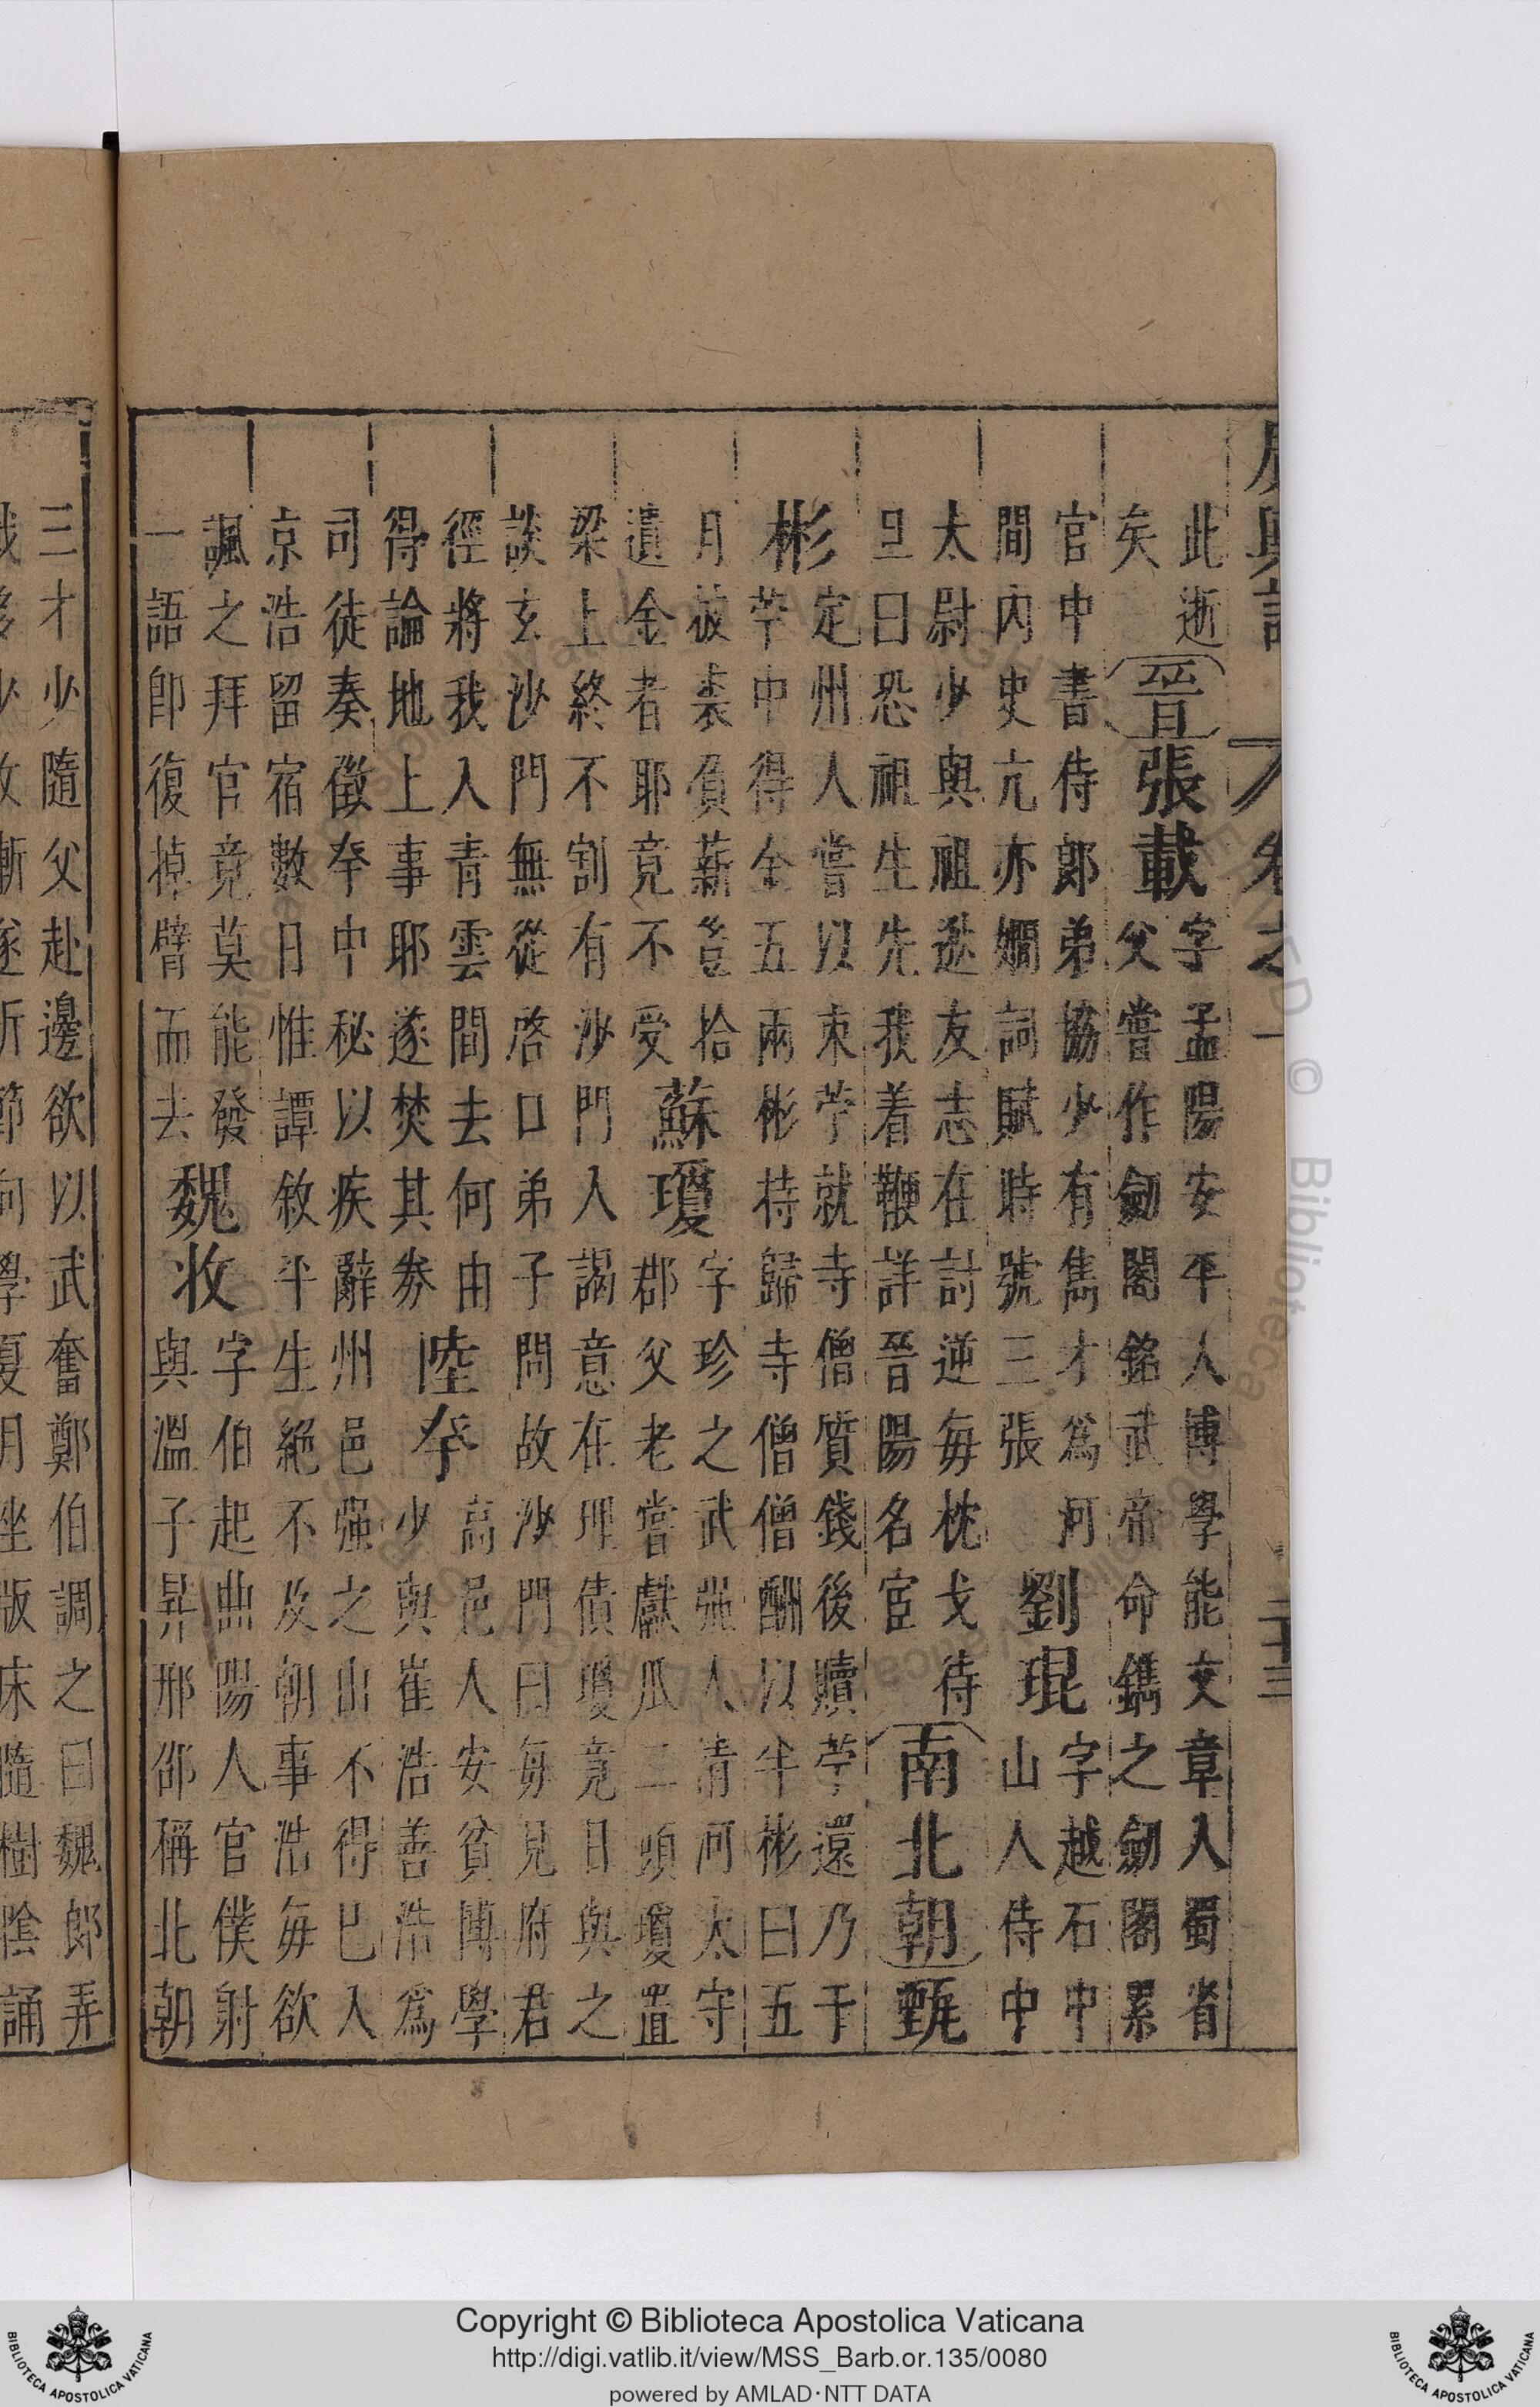 廣輿記 卷之一 二十三
此逝
矣
晉
張載
字孟陽安平人博學能文章入蜀省
父嘗作劒閣銘武帝命鐫之劒閣累
官中書侍郎弟協少有雋才爲河
間內史亢亦嫺詞賦時號三張
劉琨
字越石中
山人侍中
太尉少與祖逖友志在討逆每枕戈待
旦曰恐祖生先我着鞭詳晉陽名宦
南北朝
甄
彬
定州人嘗以束苧就寺僧質錢後贖苧還乃于
苧中得金五兩彬持歸寺僧僧酬以半彬曰五
月披裘負薪豈拾
遺金者耶竟不受
蘇瓊
字珍之武强人清河太守
郡父老嘗獻瓜二頭瓊置
梁上終不割有沙門入謁意在理債瓊竟日與之
談玄沙門無從啓口弟子問故沙門曰每見府君
徑將我入青雲間去何由
得論地上事耶遂焚其劵
眭夸
高邑人安貧博學
少與崔浩善浩爲
司徒奏徵夸中秘以疾辭州邑强之出不得已入
京浩留宿數日惟譚敘平生絕不及朝事浩每欲
諷之拜官竟莫能發
一語即復掉臂而去
魏收
字伯起曲陽人官僕射
與溫子昇邢邵稱北朝
三才少隨父赴邊欲以武奮鄭伯調之曰魏郎弄
戟多少收漸遂折節向學夏月坐版床隨樹陰誦
Copyright © Biblioteca Apostolica Vaticana
http://digi.vatlib.it/view/MSS_Barb.or.135/0080
powered by AMLAD·NTT DATA